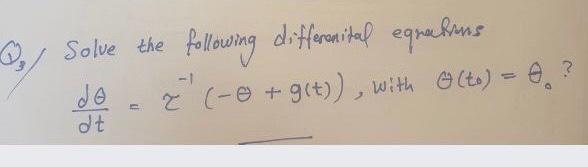 Q3/ Solve the following differenital equations
dθ/dt = τ⁻¹ (-θ + g(t)), with θ(t₀) = θ₀ ?